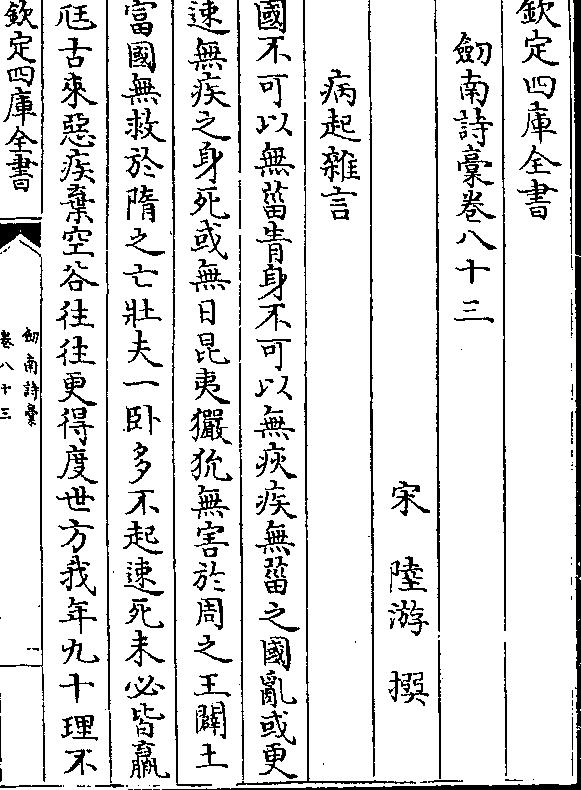 欽定四庫全書
釼南詩稾卷八十三
宋 陸游 撰
病起雜言
國不可以無菑眚身不可以無疢疾無菑之國亂或更
速無疾之身死或無日昆夷玁狁無害於周之王闢土
富國無救於隋之亡壯夫一卧多不起速死未必皆羸
尫古來惡疾棄空谷往往更得度世方我年九十理不
欽定四庫全書
釼南詩稾
卷八十三
一